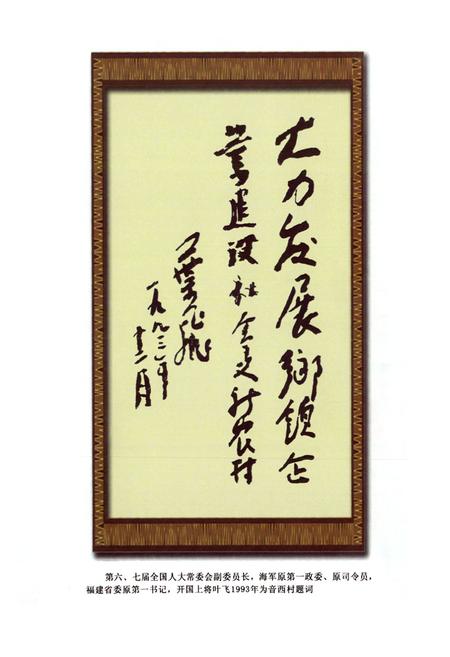 大力发展鄉镇企
業建设社会主义新农村
葉飛
一九九三年
十二月
第六、七届全国人大常委会副委员长，海军原第一政委、原司令员，
福建省委原第一书记，开国上将叶飞1993年为音西村题词